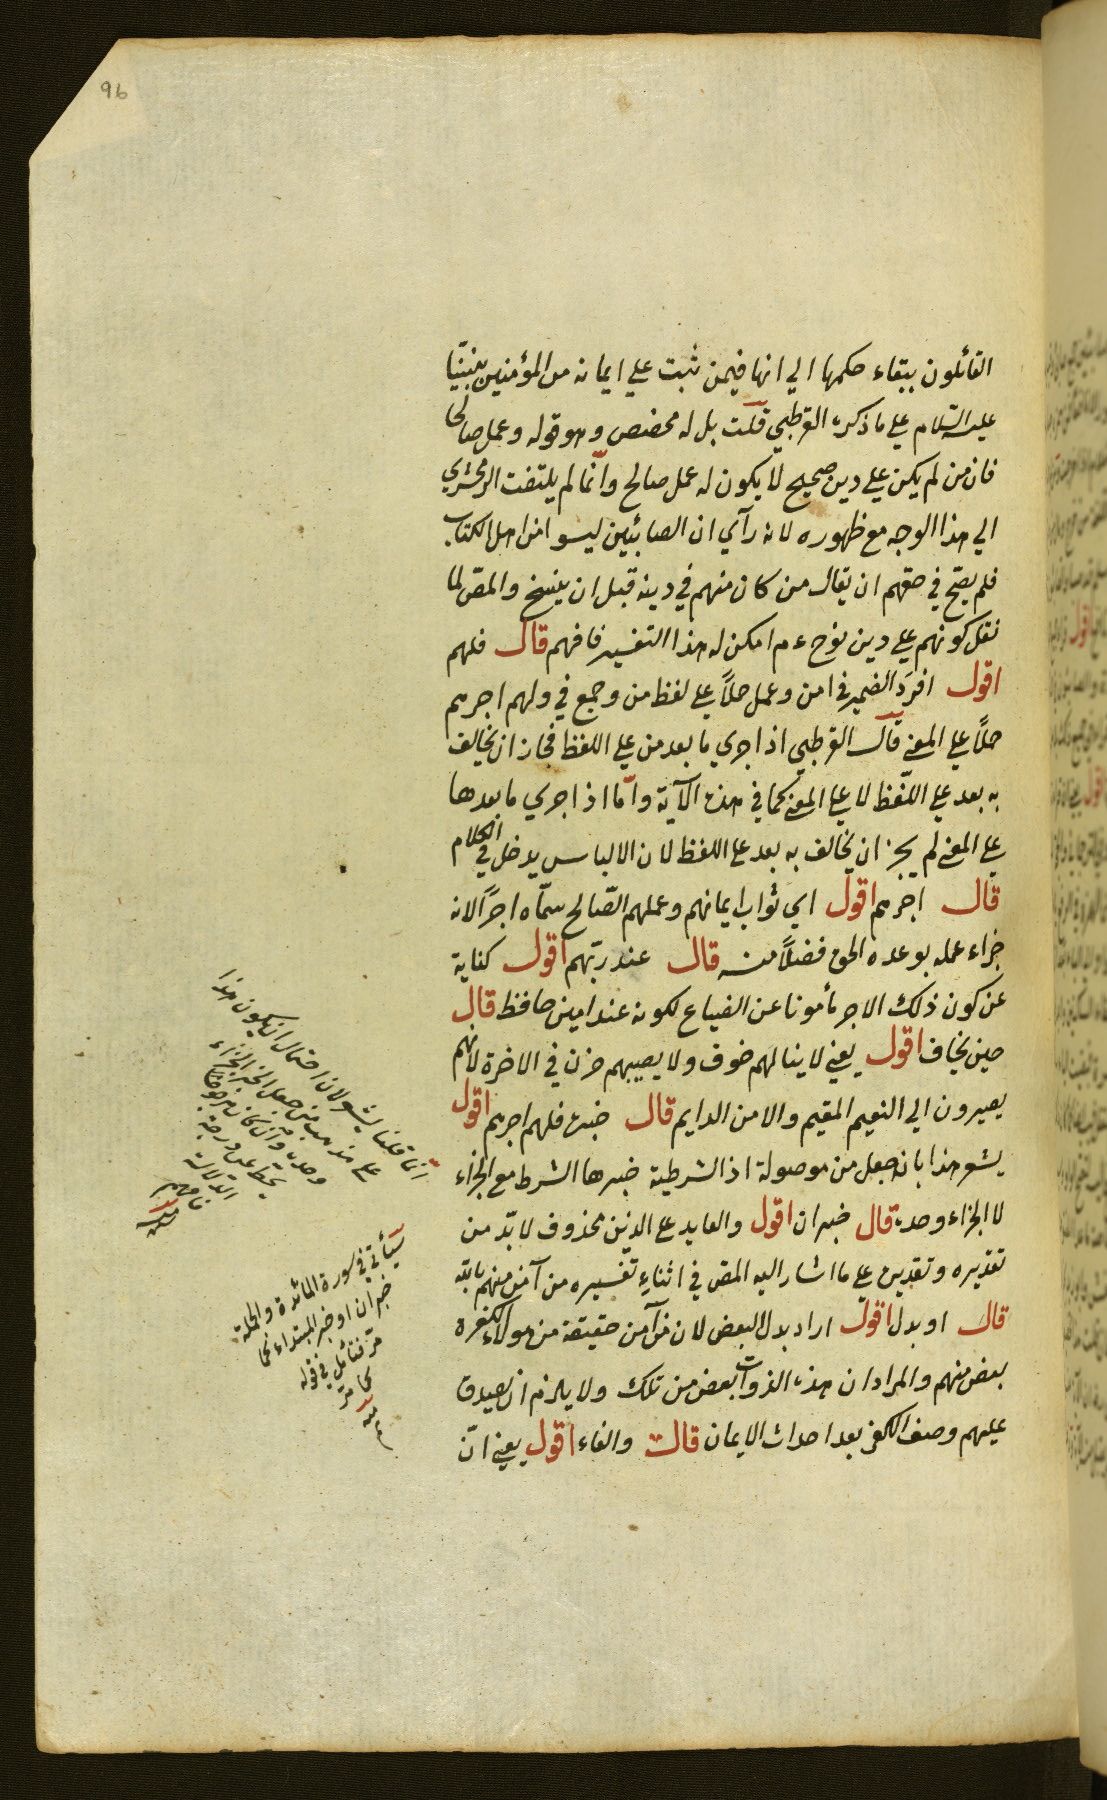 96
القائلون ببقاء حكمها الي انها فيمن ثبت علي ايمانه من المؤمنين بنبيّنا
عليه السّلام علي ما ذكره القرطبي قلت بل له مخصص وهو قوله وعمل صالحا
فان من لم يكن علي دين صحيح لا يكون له عمل صالح وانّما لم يلتفت الزمخشري
الي هذا الوجه مع ظهوره لانه رآي ان الصابئين ليسوا من اهل الكتاب
فلم يصّح في حقهم ان يقال من كان منهم في دينه قبل ان ينسخ والمص لما
نقل كونهم علي دين نوح عم امكن له هذا التفسير فافهم قال فلهم
اقول افرَد الضمير في امن وعمل حملاً علي لفظ من وجمع في ولهم اجرهم
حملاً علي المعنى قال القرطبي اذا جري ما بعد من علي اللفظ فجاز ان يخالف
به بعد علي اللّفظ لا علي المعنى كما في هذه الآية وامّا اذا جري ما بعدها
علي المعنى لم يجز ان يخالف به بعد علي اللفظ لان الالباس يدخل في الكلام
قال اجرهم اقول اي ثواب ايمانهم وعملهم الصّالح سمّاه اجرًا لانه
جزاء عمله بوعده الحق فضلاً منه قال عند ربّهم اقول كناية
عن كون ذلك الاجر مأمونا عن الضياع لكونه عند امين حافظ قال
حين يخاف اقول يعني لا ينالهم خوف ولا يصيبهم حزن في الاخرة لانهم
يصيرون الي النعيم المقيم والامن الدايم قال خبره فلهم اجرهم اقول
يشعر هذا بانه جعل من موصولة اذ الشرطية خبرها الشرط مع الجزاء
لا الجزاء وحده قال خبر ان اقول والعايد علي الذين محذوف لا بدّ من
تقديره وتقديره علي ما اشار اليه المص في اثناء تفسيره من آمن منهم بالله
قال او بدل اقول اراد بدل البعض لان من آمن حقيقة من هولاء الكفرة
بعض منهم والمراد ان هذه الذوات بعض من تلك ولا يلزم ان يصدق
عليهم وصف الكفر بعد احداث الايمان قال والفاء اقول يعني انّ
انما قلنا يشعر لان احتمال ان يكون هذا
علي مذهب من جعل الخبر الجزاء
وحده وان كان مرجوحا
يحط عن درجة
الدلالة
فافهم
منه
سيأتي في سورة المائدة والجملة
خبر ان او خبر المبتداء كما
مرّ فتأمل في قوله
كما مرّ
منه